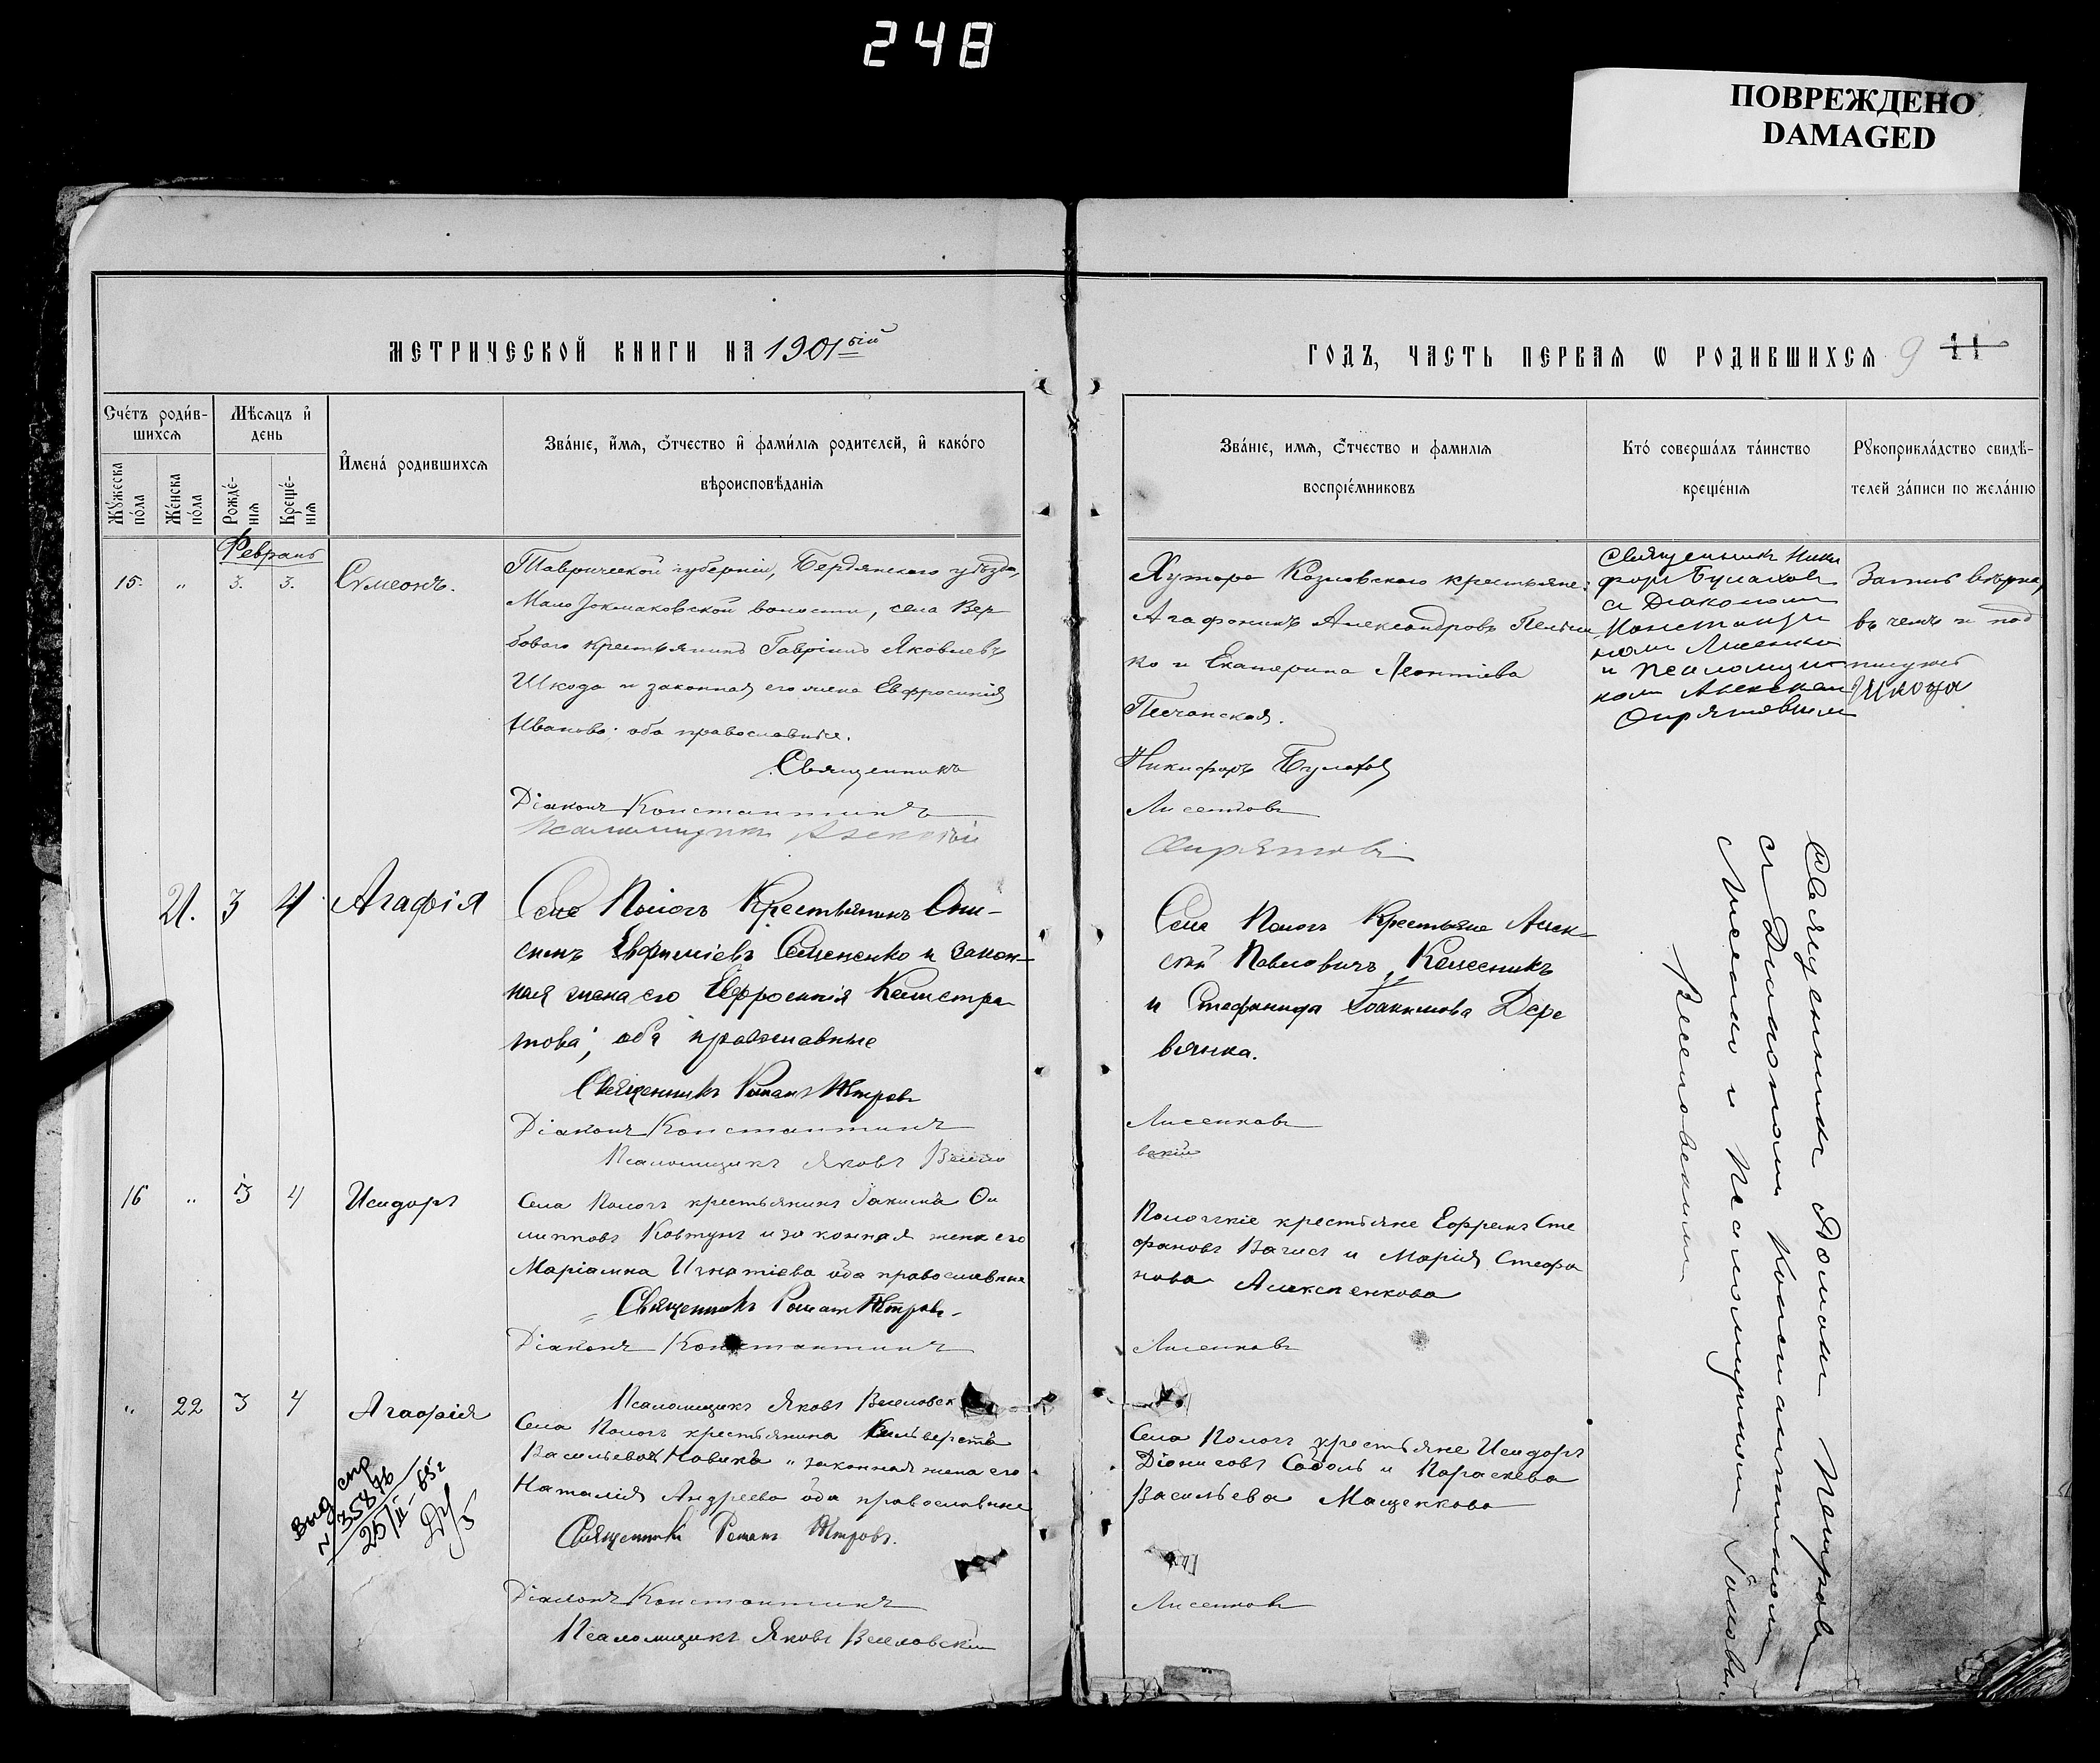 248
ПОВРЕЖДЕНО
DAMAGED
МЕТРИЧЕСКОЙ КНИГИ НА 1901ый
ГОДЪ, ЧАСТЬ ПЕРВАЯ Ѡ РОДИВШИХСЯ 9 11
Сче́тъ роди́в-
шихся
Му́жеска по́ла
Же́нска по́ла
Мѣсяцъ и҆ день
Рожде́-
нія
Креще́-
нія
И҆мена́ родившихся
Зва́нїе, и҆́мя, ѻ҆́тчество и҆ фами́лїя родителей, и҆ како́го
вѣроисповѣ́данїя
Зва́нїе, имя, ѻ҆́тчество и фамилїя
воспрїе́мниковъ
Кто́ соверша́лъ та́инство
креще́нїя
Рꙋкоприкла́дство свидѣ́-
телей за́писи по жела́нїю
Февраль
15. " 3. 3. Сѵмеонъ.
Таврической губерніи, Бердянскаго уѣзда,
Мало Токмаковской волости, села Вер
боваго крестьянинъ Гавріилъ Яковлевъ
Шкода и законная его жена Евфросинія
Иванова: оба православные.
Священникъ
Діаконъ Константинъ
Псаломщикъ Алексѣй
Хутора Козловскаго крестьяне:
Агафоникъ Александровъ
ко и Екатерина Леонтіева
Песчанская.
Никифоръ Булахов
Лисенковъ
Опрятовъ
Священникъ Ники
форъ Булахов
съ Діакономъ
Константи
номъ Лисенко
и Псаломщи
комъ Алексѣем
Опрятовымъ
Запись вѣрна,
въ чемъ и под
писуюсь
Шкода
21. 3 4 Агафія
Села Пологъ Крестьянинъ Они-
симъ Евфиміевъ Семененко и закон-
ная жена его Евфросинія Калистра
това; оба православные
Священникъ Романъ Петровъ
Діаконъ Константинъ
Псаломщикъ Яковъ Весело
Села Пологъ Крестьяне Алек-
сѣй Павловичъ Колесникъ
и Стефанида Іоакимова Дере
вянка.
Лисенковъ
вскій
16 " 3 4 Исидоръ
Села Пологъ крестьянинъ Іакимъ Фи
липповъ Ковтунъ и законная жена его
Маріамна Игнатіева оба православные
Священникъ Романъ Петровъ
Діаконъ Константинъ
Псаломщикъ Яковъ Веселовск
Пологскіе крестьяне Ефремъ Сте
фановъ и Марія Стефа
нова Алексѣенкова
Лисенковъ
" 22 3 4 Агафія
Села Пологъ крестьянина Сильверста
Васильева Новика и законная жена его
Наталія Андреева оба православные
Священникъ Романъ Петровъ.
Діаконъ Константинъ
Псаломщикъ Яковъ Веселовскій
Села Пологъ крестьяне Исидоръ
Діонисовъ Соболь и Параскева
Васильева Мащенкова
Лисенковъ
Священникъ Романъ Петровъ
съ Діакономъ Константиномъ
Лисенко и Псаломщикомъ Яковомъ
Веселовскимъ
выд спр
25/II-65г